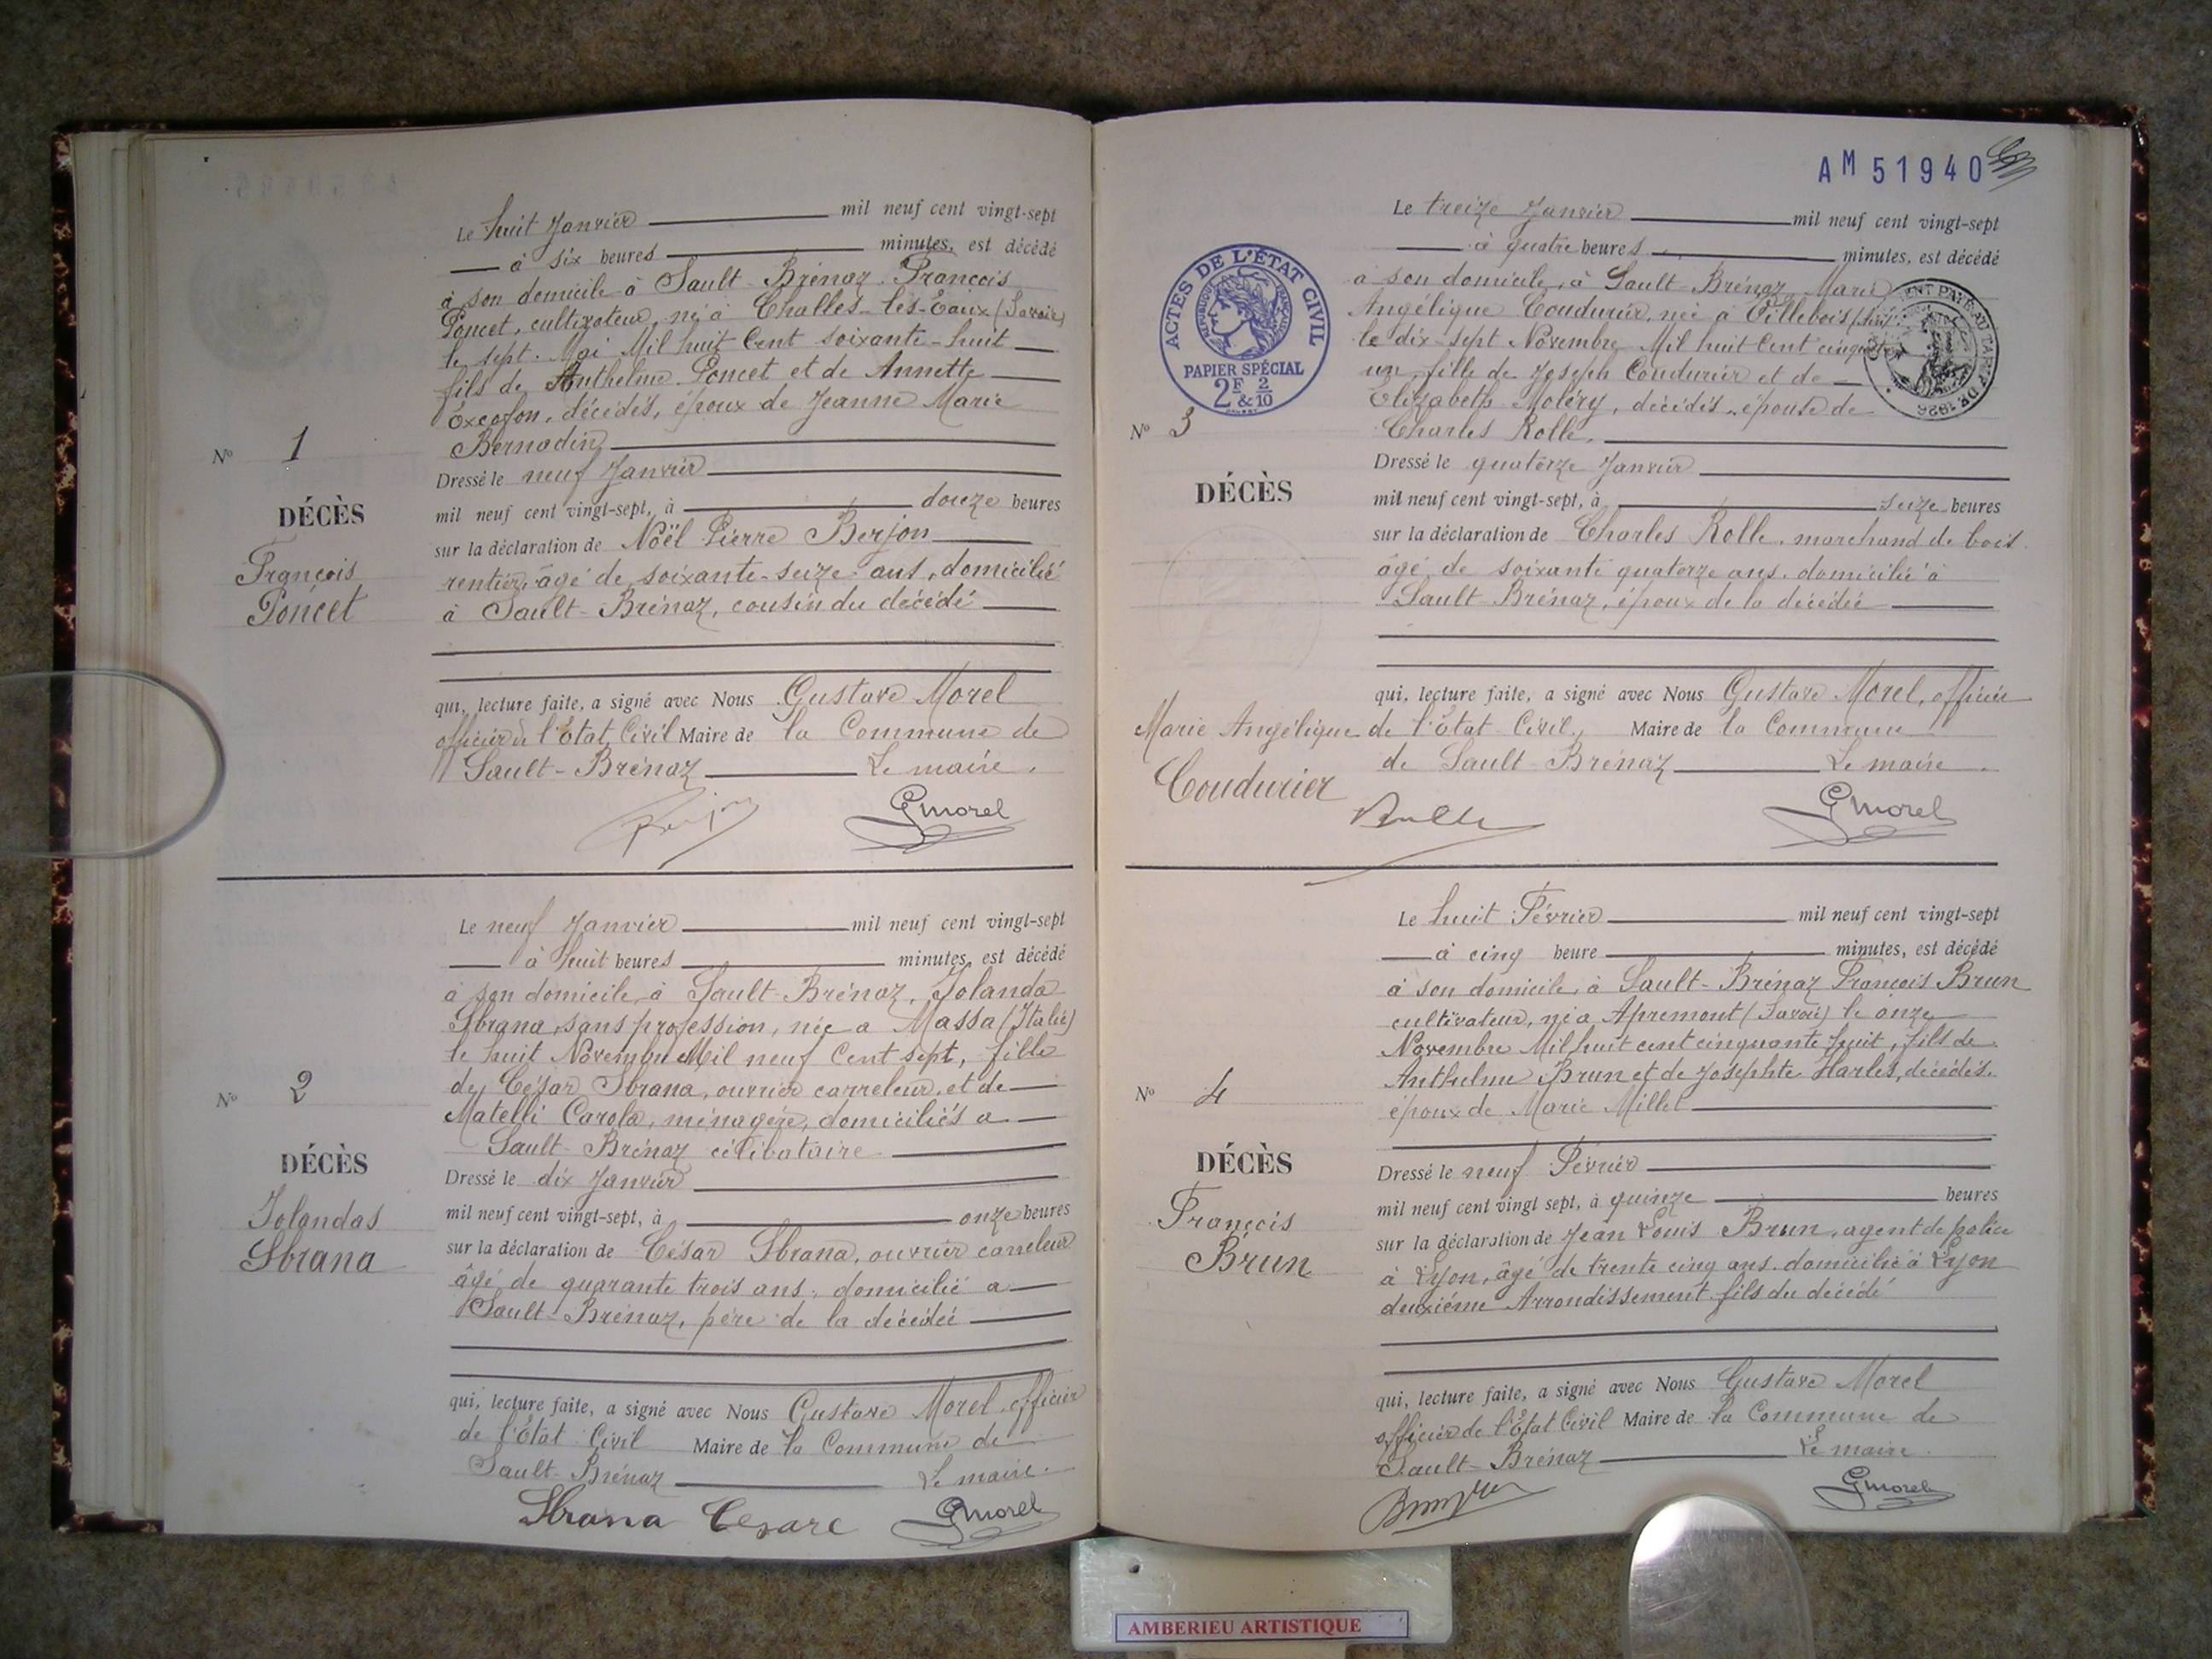 Le huit Janvier mil neuf cent vingt-sept
à six heures minutes, est décédé
à son domicile à Sault-Brénaz, François
Poncet, cultivateur, né à Challes-les-Eaux (Savoie)
le sept Mai Mil huit Cent soixante-huit
fils de Anthelme Poncet et de Annette
décédés, époux de Jeanne Marie
Bernadin
Nº 1
Dressé le neuf Janvier
DÉCÈS
mil neuf cent vingt-sept, à douze heures
sur la déclaration de Noël Pierre Berjon
François
rentier, âgé de soixante-seize ans, domicilié
Poncet
à Sault-Brénaz, cousin du décédé
qui, lecture faite, a signé avec Nous Gustave Morel
officier de l'État Civil Maire de la Commune de
Sault-Brénaz Le maire.
GMorel
Le neuf Janvier mil neuf cent vingt-sept
à huit heures minutes, est décédé
à son domicile à Sault-Brénaz, Iolanda
Sbrana, sans profession, née a Massa (Italie)
le huit Novembre Mil neuf Cent sept, fille
de César Sbrana, ouvrier carreleur, et de
Nº 2
Matelli Carola, ménagère, domiciliés a
Sault-Brénaz célibataire
DÉCÈS
Dressé le dix Janvier
Iolandas
mil neuf cent vingt-sept, à onze heures
Sbrana
sur la déclaration de César Sbrana, ouvrier carreleur
âgé de quarante trois ans, domicilié a
Sault-Brénaz, père de la décédée
qui, lecture faite, a signé avec Nous Gustave Morel officier
de l'État Civil Maire de la Commune de
Sault-Brénaz Le maire.
Sbrana Cesare GMorel
AM 51940
Le treize Janvier mil neuf cent vingt-sept
à quatre heures minutes, est décédé
à son domicile, à Sault-Brénaz, Marie
Angélique Coudurier, née à Villebois (Ain)
le dix-sept Novembre Mil huit Cent cinquante
un, fille de Joseph Coudurier et de
Elizabeth Moléry, décédés, épouse de
Charles Rolle.
ACTES DE L'ÉTAT CIVIL
RÉPUBLIQUE FRANÇAISE
PAPIER SPÉCIAL
2F & 2/10
TARIF DE 1926
Nº 3
Dressé le quatorze Janvier
DÉCÈS
mil neuf cent vingt-sept, à seize heures
sur la déclaration de Charles Rolle, marchand de bois
âgé de soixante quatorze ans, domicilié à
Sault-Brénaz, époux de la décédée
qui, lecture faite, a signé avec Nous Gustave Morel, officier
Marie Angélique
de l'État Civil, Maire de la Commune
Coudurier
de Sault-Brénaz Le maire.
GMorel
Le huit Février mil neuf cent vingt-sept
à cinq heure minutes, est décédé
à son domicile, à Sault-Brénaz François Brun
cultivateur, né à Apremont (Savoie) le onze
Novembre Mil huit cent cinquante huit, fils de
Anthelme Brun et de Josephte Harles, décédés.
Nº 4
époux de Marie Millet
DÉCÈS
Dressé le neuf Février
François
mil neuf cent vingt sept, à quinze heures
Brun
sur la déclaration de Jean Louis Brun, agent de police
à Lyon, âgé de trente cinq ans, domicilié à Lyon
deuxiéme Arrondissement fils du décédé
qui, lecture faite, a signé avec Nous Gustave Morel
officier de l'État Civil Maire de la Commune de
Sault-Brénaz Le maire.
GMorel
AMBERIEU ARTISTIQUE